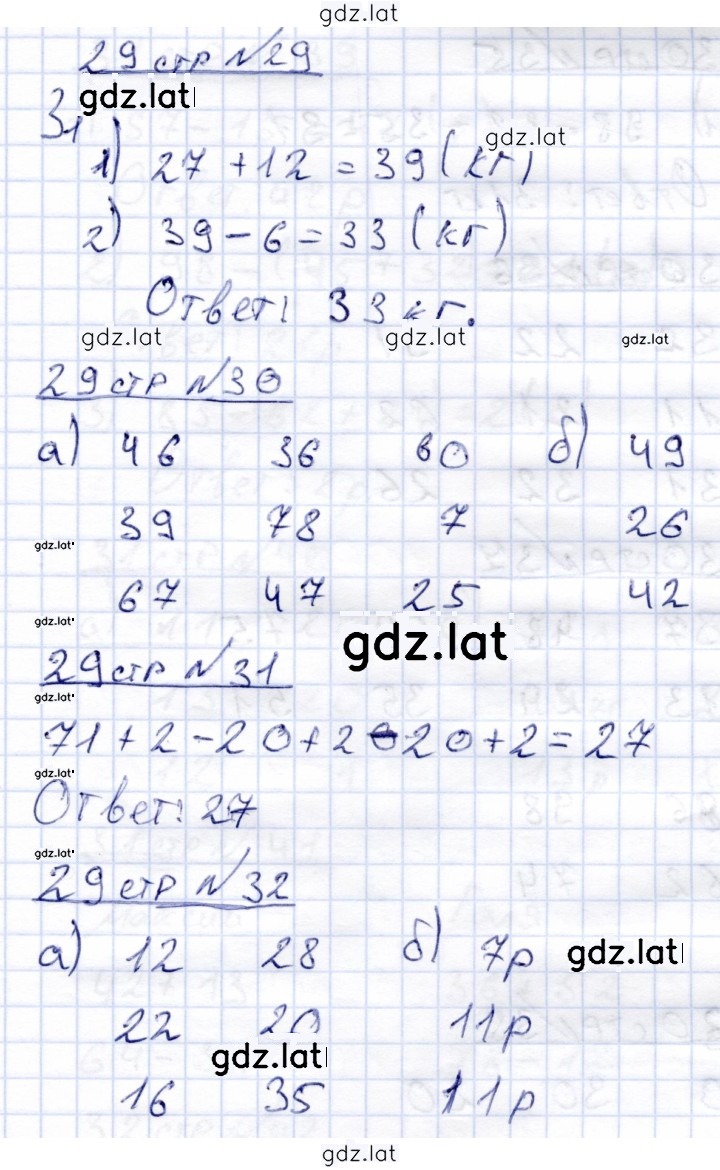 gdz.lat
29 стр №29
gdz.lat
31
gdz.lat
1) 27 + 12 = 39 (кг)
2) 39 - 6 = 33 (кг)
Ответ: 33 кг.
gdz.lat gdz.lat gdz.lat
29 стр №30
а) 46 36 60 б) 49
39 78 7 26
gdz.lat
67 47 25 42
gdz.lat gdz.lat
29 стр №31
gdz.lat
71 + 2 - 20 + 2 - 20 + 2 = 27
gdz.lat
Ответ: 27
gdz.lat
29 стр №32
а) 12 28 б) 7р gdz.lat
22 20 11р
gdz.lat
16 35 11р
gdz.lat